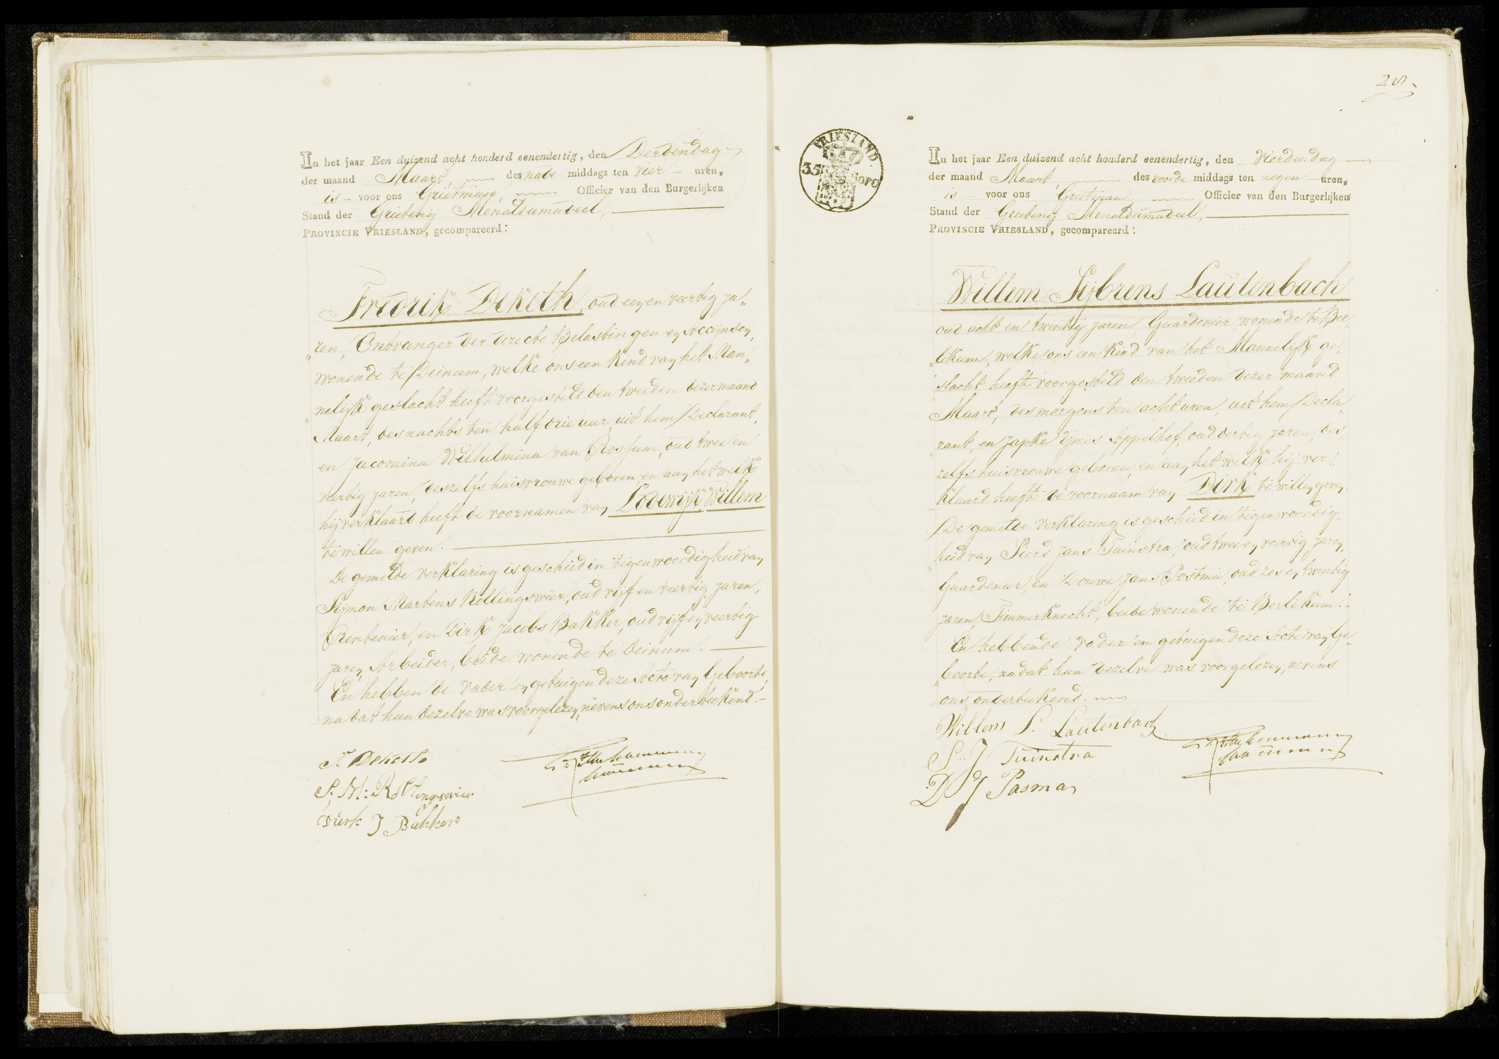 In het jaar Een duizend acht honderd eenendertig, den Derden dag
der maand Maart, des nade middags ten vier uren,
is voor ons Grietman, Officier van den Burgerlijken
Stand der Grieteny Menaldumadeel,
PROVINCIE VRIESLAND, gecompareerd:
Frederik Deketh, oud een en veertig ja-
ren, Ontvanger der directe Belastingen en Accijnsen,
wonende te Deinum, welke ons een kind van het Man-
nelijk geslacht heeft voorgesteld den tweeden dezer maand
Maart, des nachts ten half drie uur, uit hem Declarant,
en Jacomina Wilhelmina van Rossum, oud twee en
veertig jaren, deszelfs huisvrouwe geboren, en aan het welk
hij verklaard heeft de voornamen van Lodewijk Willem
te willen geven.
De gemelde verklaring is geschied in tegenwoordigheid van
Simon Martens Rollingswier, oud vijf en veertig jaren,
Rentenier, en Dirk Jacobs Bakker, oud vijf en veertig
jaren, Arbeider, beide wonende te Deinum.
En hebben de vader en getuigen deze Acte van Geboorte,
na dat hun dezelve was voorgelezen, nevens ons onderteekend.
F Deketh
S. M. Rollingswier
Dierk J Bakker
28.
VRIESLAND.
35
In het jaar Een duizend acht honderd eenendertig, den Vierden dag
der maand Maart, des voorde middags ten negen uren,
is voor ons Grietman Officier van den Burgerlijken
Stand der Grieteny Menaldumadeel,
PROVINCIE VRIESLAND, gecompareerd:
Willem Sybrens Lautenbach
oud acht en twintig jaren Gardenier wonende te Be-
likum, welke ons een kind van het Mannelijk ge-
slacht heeft voorgesteld den tweeden dezer maand
Maart, des morgens ten acht uren, uit hem Decla-
rant, en Japke Ypes Appelhof, oud dertig jaren, des-
zelfs huisvrouwe geboren, en aan het welk hij ver-
klaard heeft de voornaam van Dirk te willen geven.
De gemelde verklaring is geschied in tegenwoordig-
heid van Sierd Jans Tuinstra, oud twee en veertig jaren,
Gardenier, en Douwe Jans Postma, oud zes en twintig
jaren, Timmerknecht, beide wonende te Berlikum.
En hebben de vader en getuigen deze Acte van Ge-
boorte, nadat hun dezelve was voorgelezen, nevens
ons onderteekend.
Willem S. Lautenbach
S. J. Tuinstra
D J Pasma